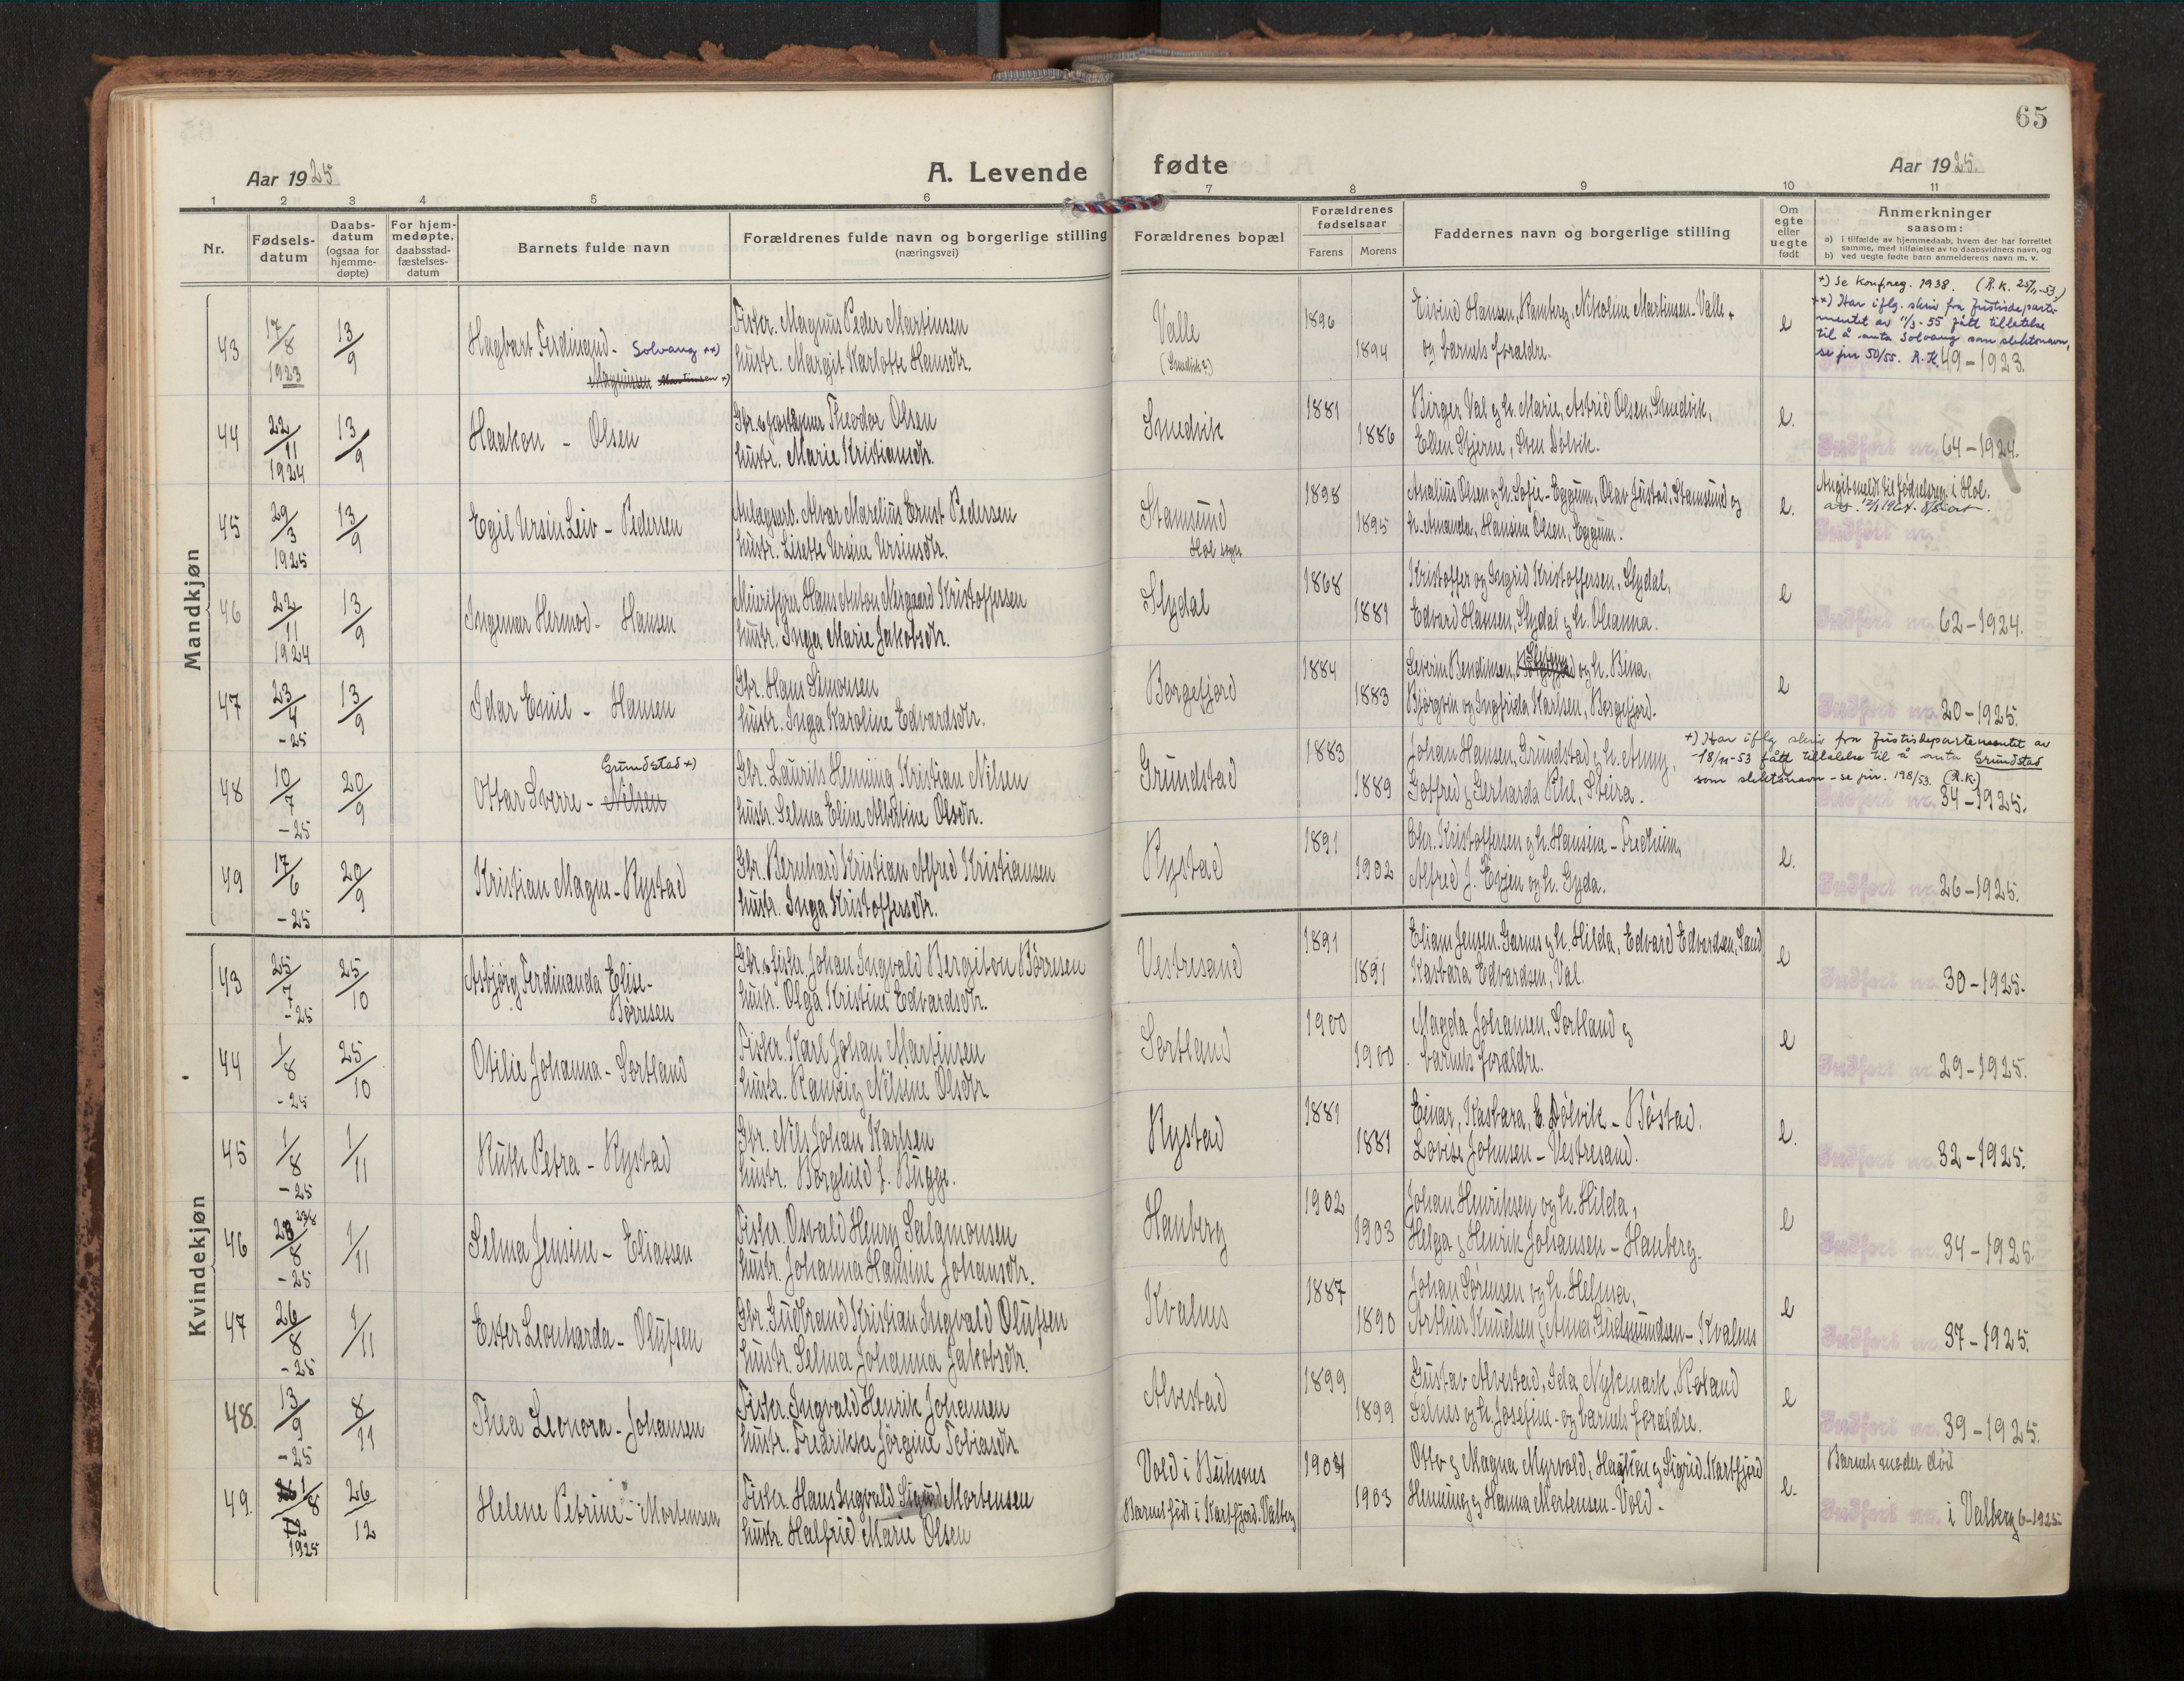 65
Aar 1925
A. Levende
fødte
Aar 1925.
1 2 3 4 5 6 7 8 9 10 11
Nr.
Fødsels-
datum
Daabs-
datum
(ogsaa for
hjemme-
døpte)
For hjem-
medøpte,
daabsstad-
fæstelses-
datum
Barnets fulde navn
Forældrenes fulde navn og borgerlige stilling
(næringsvei)
Forældrenes bopæl
Forældrenes
fødselsaar
Farens Morens
Faddernes navn og borgerlige stilling
Om
egte
eller
uegte
født
Anmerkninger
saasom:
a) I tilfælde av hjemmedaab, hvem der har forrettet
samme, med tilføielse av to daabsvidners navn, og
b) ved uegte fødte barn anmelderens navn m. v.
Mandkjøn
43 17/8 1923 13/9
Hagbart Ferdinand - Solvang ××)
Magnussen Martinsen ×)
Fisker. Magnus Peder Martinsen
hustr. Margit Karlotte Hansdtr.
Valle
(Smedvik?)
1896
1894
Eivind Hansen, Ramberg, Nikoline Martinsen - Valle +
og barnets foraldre.
e
×) Se konf.reg. 1938. (R.K. 25/11-53)
××) Har iflg. skriv fra Justisdeparte-
mentet av 11/3-55 fått tillatelse
til å anta Solvang som slektsnavn,
se jnr 50/55. R.K.
Indført nr. 49-1923.
44 22/11 1924 13/9
Haakon - Olsen
Theodor Olsen
hustr. Marie Kristiansdtr.
Smedvik
1881
1886
Birger Val og h. Marie, Astrid Olsen, Smedvik,
Ellen Stjerne, Sven Dølvik.
e.
Indført nr. 64-1924.
45 29/3 1925 13/9
Egil Ursin Leiv - Pedersen
Anlægsarb. Alvar Marelius Ernst Pedersen
hustr. Lisette Ursine Ursinsdtr.
Stamsund
Hol sogn
1898
1895
Analius Olsen og h. Sofie - Eggum, Olav Justad, Stamsund og
h. Amanda, Hansine Olsen, Eggum.
e.
Angit meldt til fødselsreg. i Hol.
Indført nr.
46 22/11 1924 13/9
Ingemar Hermod - Hansen
Hans Anton Nergaard Kristoffersen
hustr. Inga Marie Jakobsdtr.
Slydal
1868
1881
Kristoffer og Ingrid Kristoffersen, Slydal,
Edvard Hansen, Slydal og h. Oleanna.
e
Indført nr. 62-1924.
47 23/4 -25 13/9
Idar Emil - Hansen
Gbr. Hans Simonsen
hustr. Inga Karoline Edvardsdtr.
Borgefjord
1884
1883
Severin Bendiksen, og h. Bina,
Bjørgvin og Ingfrida Karlsen, Borgefjord.
e
Indført nr. 20-1925.
48 10/7 -25 20/9
Grundstad ×)
Ottar Sverre - Nilsen
Gbr. Laurits Henning Kristian Nilsen
hustr. Selma Eline Albertine Olsdtr.
Grundstad
1883
1889
Johan Hansen, Grundstad og h. Anny,
Goffred og Gerharda Pihl, Steira.
×) Har iflg skriv fra Justisdepartementet av
-18/11-53 fått tillatelse til å anta Grundstad
som slektsnavn - se jnr. 198/53. (R.K.)
Indført nr. 34-1925.
49 17/6 -25 20/9
Kristian Magne - Rystad
Gbr. Bernhard Kristian Alfred Kristiansen
hustr. Inga Kristoffersdtr.
Rystad
1891
1902
Chr. Kristoffersen og h. Hansine - Fredheim,
Alfred J. Evjen og h. Gyda.
e.
Indført nr. 26-1925.
Kvindekjøn
43 25/7 -25 25/10
Asbjørg Ferdinanda Elise -
Børresen
Gbr. & fisker. Johan Ingvald Bergiton Børresen
hustr. Olga Kristine Edvardsdtr.
Vestresand
1891
1891
Eliam Jensen Garnes og h. Hilda, Edvard Edvardsen, Sand
Kasbara Edvardsen, Val.
e
Indført nr. 30-1925.
44 1/8 -25 25/10
Otilie Johanna - Sortland
Fisker. Karl Johan Martinsen
hustr. Ranveig Nilsine Olsdtr
Sortland
1900
1900
Magda Johansen, Sortland og
barnets foraldre.
e
Indført nr. 29-1925.
45 1/8 -25 1/11
Ruth Petra - Rystad
Gbr. Nils Johan Karlsen
hustr. Borghild f. Bugge.
Rystad
1881
1881
Einar, Kasbara, E. Dølvik - Bøstad.
Lovise Johnsen - Vestresand.
e.
Indført nr. 32-1925.
46 28/8 23/8 -25 1/11
Selma Jensine - Eliassen
Fisker. Osvald Henry Salamonsen
hustr. Johanna Hansine Johansdtr.
Hanberg
1902
1903
Johan Henriksen og h. Hilda,
Helga og Henrik Johansen - Hanberg.
e
Indført nr. 34-1925.
47 26/8 -25 1/11
Ester Leonharda - Olufsen
Gbr. Gudbrand Kristian Ingvald Olufsen
hustr. Selma Johanna Jakobsdtr.
Kvalnes
1887
1890
Johan Sørensen og h. Helma,
Arthur Knudsen og Anna Gudmundsen - Kvalnes
e
Indført nr. 37-1925.
48. 13/9 -25 8/11
Thea Leonora - Johansen
Fisker. Ingvald Henrik Johansen
hustr. Fredrikke Jörgine Tobiasdtr.
Alvestad
1899
1899
Gustav Alvestad, Ida Nykmark, Roland
Selnes og h. Josefine - og barnets foraldre.
e
Indført nr. 39-1925.
49. 1/8 1925 26/12
Helene Petrine - Mortensen
Fisker. Hans Ingvald Sigurd Mortensen
hustr. Halfrid Marie Olsen
Vold i Buksnes
Barnet født i Kartfjord. Valberg
1904
1903
Otter og Magna Myrvold, Haakon og Sigrid. Kartfjord
Henning og Hanna Mortensen - Vold.
e.
Barnets moder död
Indført nr. i Valberg 6-1925.